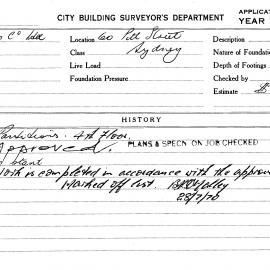 CITY BUILDING SURVEYOR'S DEPARTMENT
APPLICAT
YEAR
Co Ltd
Location 60 Pitt Street
Description
Class Sydney
Nature of Foundation
Live Load
Depth of Footings
Foundation Pressure
Checked by
Estimate £
HISTORY
Partitions. 4th floor.
Approved.
PLANS & SPECN ON JOB CHECKED
Work is completed in accordance with the approv
Marked off list.
28/7/70